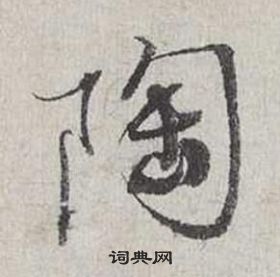 陶
词典网